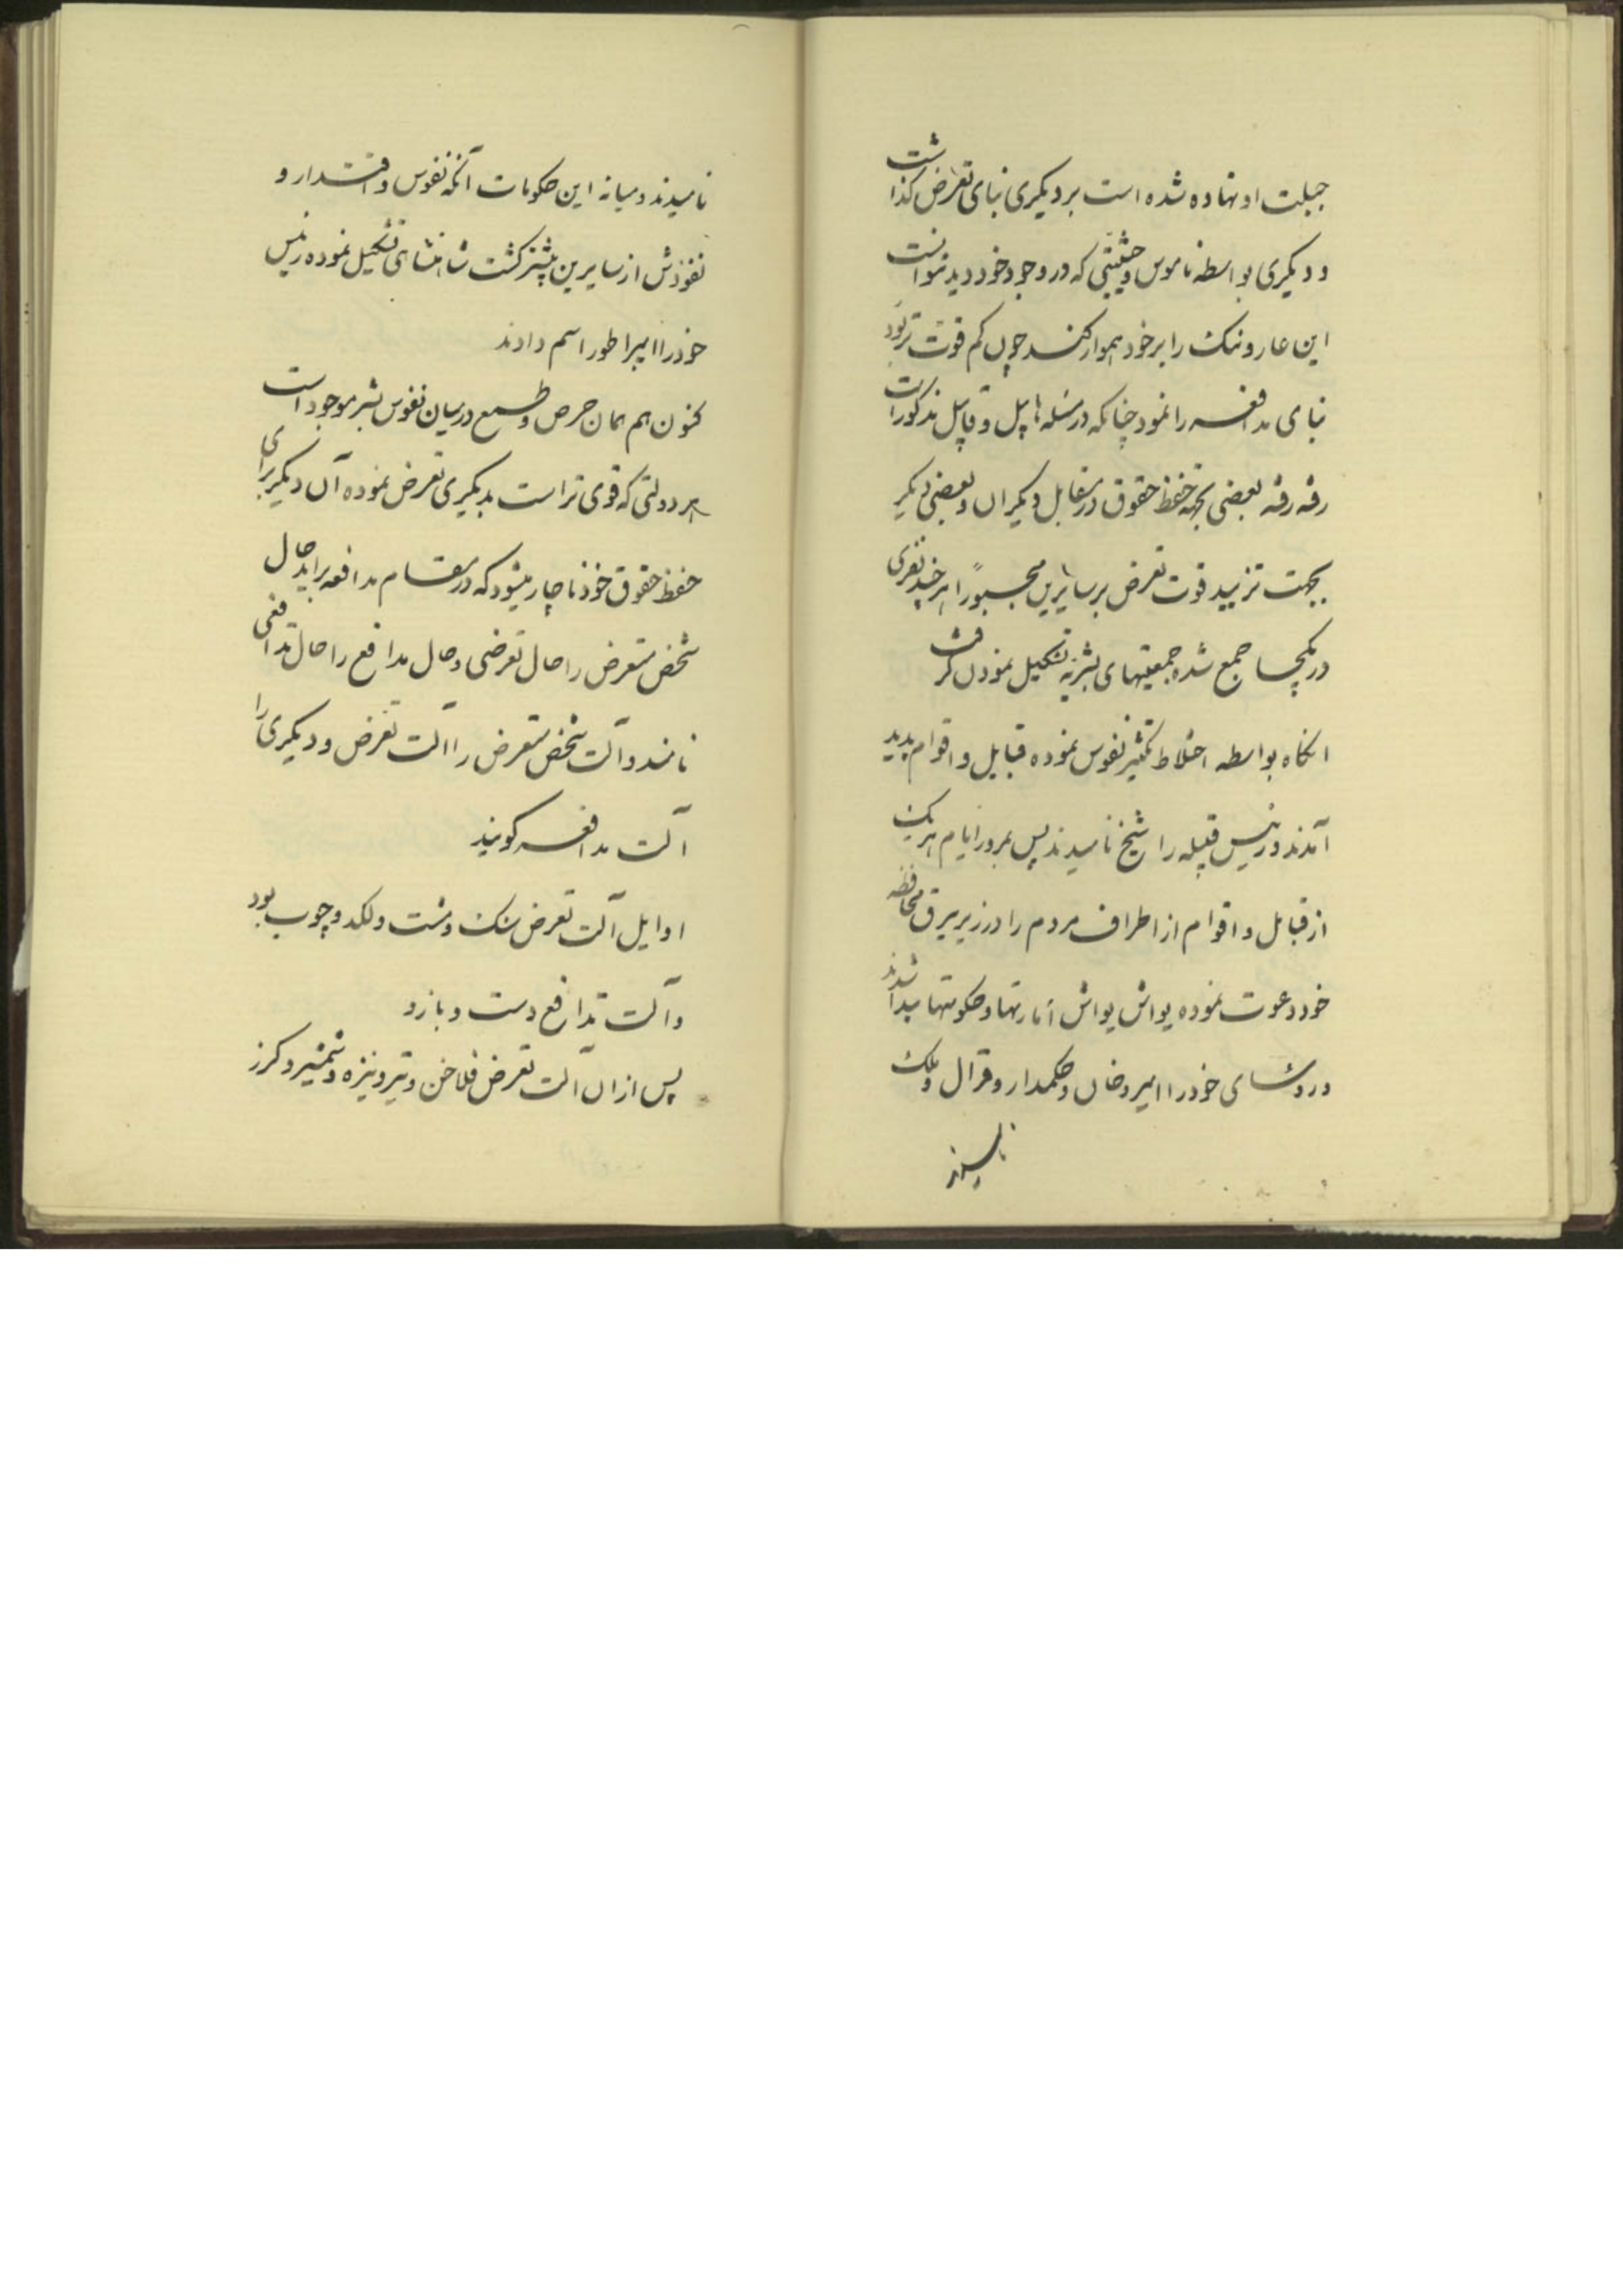 جبلت او نهاده شده است بر دیکری بنای تعرض کذاشت
و دیکری بواسطه ناموس و حیثیتی که در وجود خود دید نتوانست
این عار و ننک را بر خود هموار کند چون کم قوت تر بود
بنای مدافعه را نمود چنانکه در مسئله هابیل و قابیل مذکور است
رفته رفته بعضی بجهة حفظ حقوق در مقابل دیکران و بعضی دیکر
بجهت تزیید قوت تعرض بر سایرین مجبوراً هر چند نفری
در یکجا جمع شده جمعیتهای بشریه تشکیل نمودن کرفت
انکاه بواسطه اختلاط تکثیر نفوس نموده قبایل و اقوام پدید
آمدند و رئیس قبیله را شیخ نامیدند پس بمرور ایام هر یک
از قبایل و اقوام از اطراف مردم را در زیر بیرق محافظه
خود دعوت نموده یواش یواش امارتها و حکومتها پیدا شدند
و رؤسای خود را امیر و خان و حکمدار و قرال و ملک
نامیدند
نامیدند و میانه این حکومات آنکه نفوس و اقتدار و
نفوذش از سایرین بیشتر کشت شاهنشاهی تشکیل نموده رئیس
خود را امپراطور اسم دادند
کنون هم همان حرص و طمع در میان نفوس بشر موجود است
هر دولتی که قوی تر است بدیکری تعرض نموده آن دیکر برای
حفظ حقوق خود ناچار میشود که در مقام مدافعه براید حال
شخص متعرض را حال تعرضی و حال مدافع را حال تدافعی
نامند و آلت شخص متعرض را الت تعرض و دیکری را
آلت مدافعه کویند
اوایل آلت تعرض سنک و مشت و لکد و چوب بود
و آلت تدافع دست و بازو
پس از ان آلت تعرض فلاخن و تیر و نیزه و شمشیر و کرز